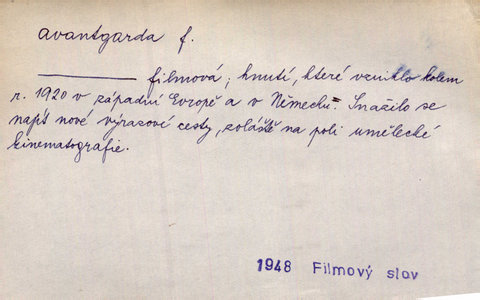 avantgarda f.
——— filmová; hnutí, které vzniklo kolem
r. 1920 v západní Evropě a v Německu. Snažilo se
najít nové výrazové cesty, zvláště na poli umělecké
kinematografie.
1948 Filmový slov